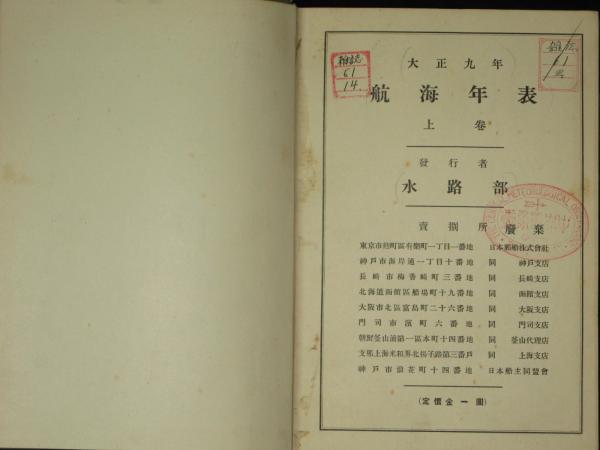 大正九年
航海年表
上卷
發行者
水路部
賣捌所
廢棄
東京市麹町區有樂町一丁目一番地 日本郵船株式會社
神戸市海岸通一丁目十番地 同 神戸支店
長崎市梅香崎町三番地 同 長崎支店
北海道函館區船場町十九番地 同 函館支店
大阪市北區富島町二十六番地 同 大阪支店
門司市濱町六番地 同 門司支店
朝鮮釜山府第一區本町十四番地 同 釜山代理店
支那上海米租界北揚子路第三番戸 同 上海支店
神戸市浪花町十四番地 日本船主同盟會
(定價金一圓)
雜誌
61
14.
61
METEOROLOGICAL